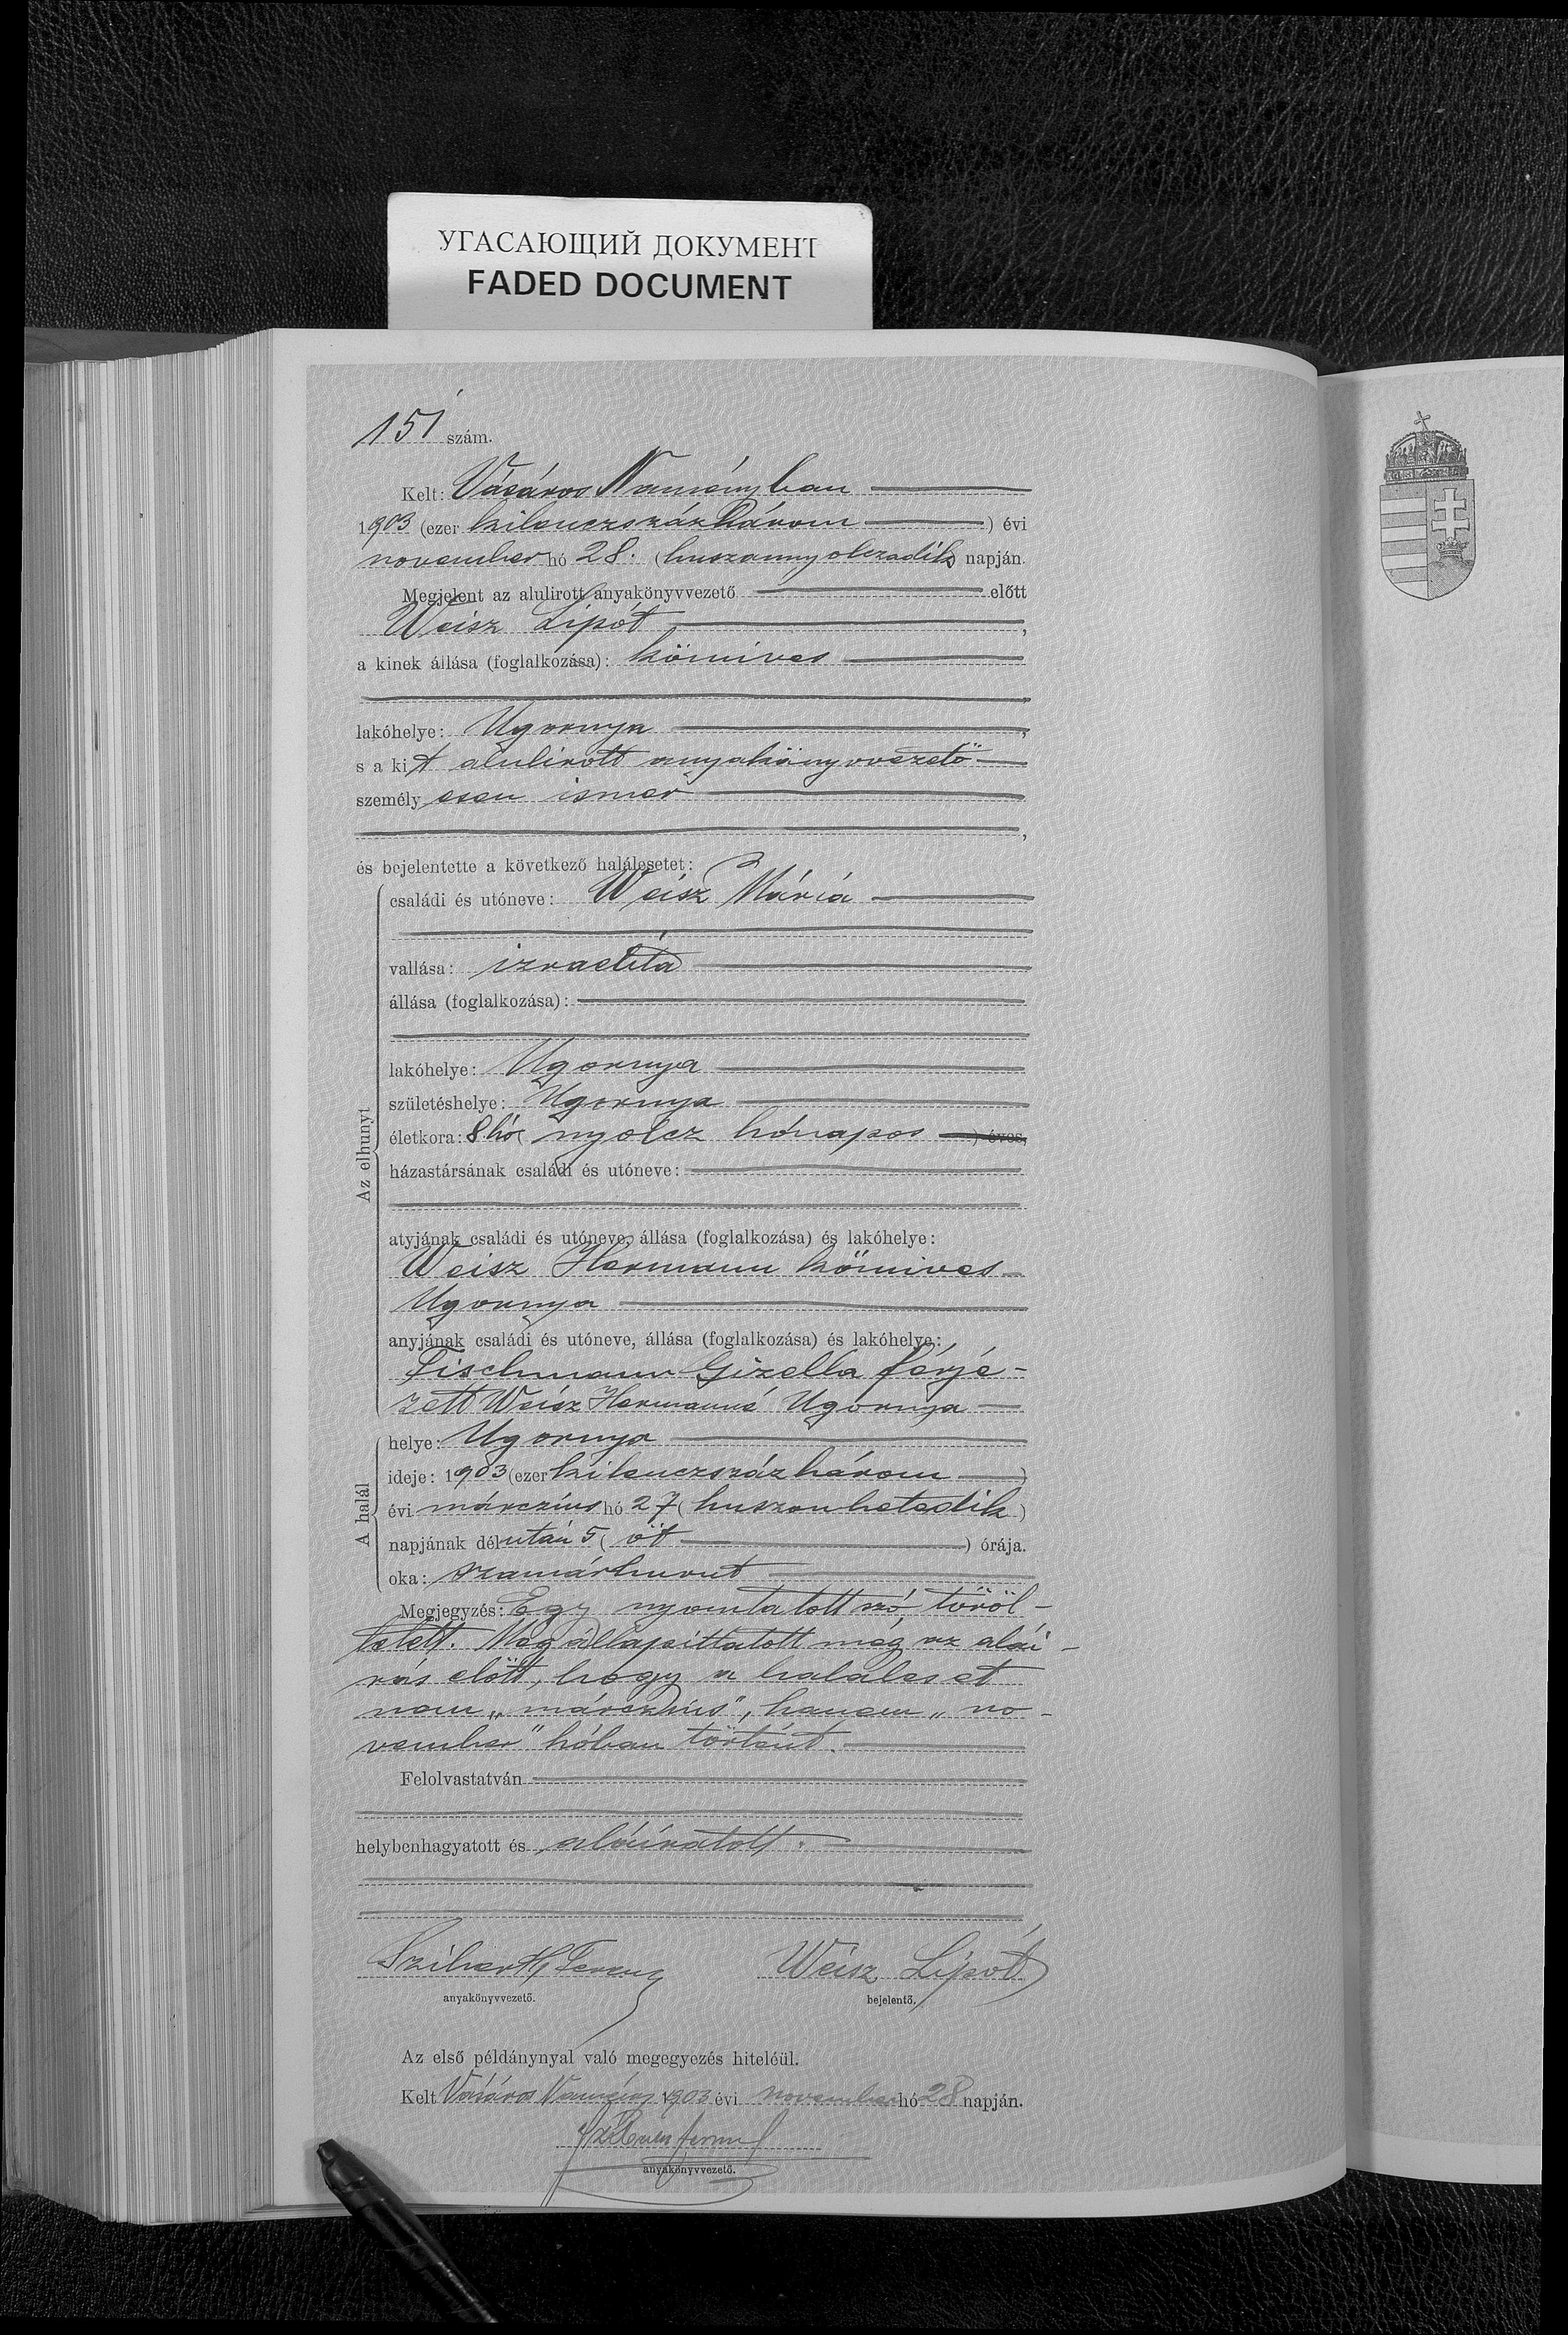 УГАСАЮЩИЙ ДОКУМЕНТ
FADED DOCUMENT
151 szám.
Kelt: Vásáros Naményban
1903 (ezer kilenczszázhárom ) évi
november hó 28. (huszonnyolczadik) napján.
Megjelent az alulirott anyakönyvvezető előtt
Weisz Lipót ,
a kinek állása (foglalkozása): kőmives
lakóhelye: Ugornya ,
s a kit alulirott anyakönyvvezető
személyesen ismer
,
és bejelentette a következő halálesetet:
Az elhunyt
családi és utóneve: Weisz Mária
vallása: izraelita
állása (foglalkozása):
lakóhelye: Ugornya
születéshelye: Ugornya
életkora: 8 hó ( nyolcz hónapos ) éves,
házastársának családi és utóneve:
atyjának családi és utóneve, állása (foglalkozása) és lakóhelye:
Weisz Hermann kőmives
Ugornya
anyjának családi és utóneve, állása (foglalkozása) és lakóhelye:
Fischmann Gizella férje-
zett Weisz Hermanné Ugornya
A halál
helye: Ugornya
ideje: 1903 (ezer kilenczszázhárom )
évi márczius hó 27 (huszonhetedik)
napjának délután 5 ( öt ) órája.
oka: szamárhurut
Megjegyzés: Egy nyomtatott szó töröl-
tetett. Megállapíttatott még az aláí-
rás előtt, hogy a haláleset
nem „márczius", hanem „no-
vember" hóban történt.
Felolvastatván
helybenhagyatott és aláíratott.
Ferencz Weisz Lipót
anyakönyvvezető. bejelentő.
Az első példánynyal való megegyezés hiteléül.
Kelt Vásáros Namény 1903 évi november hó 28 napján.
anyakönyvvezető.